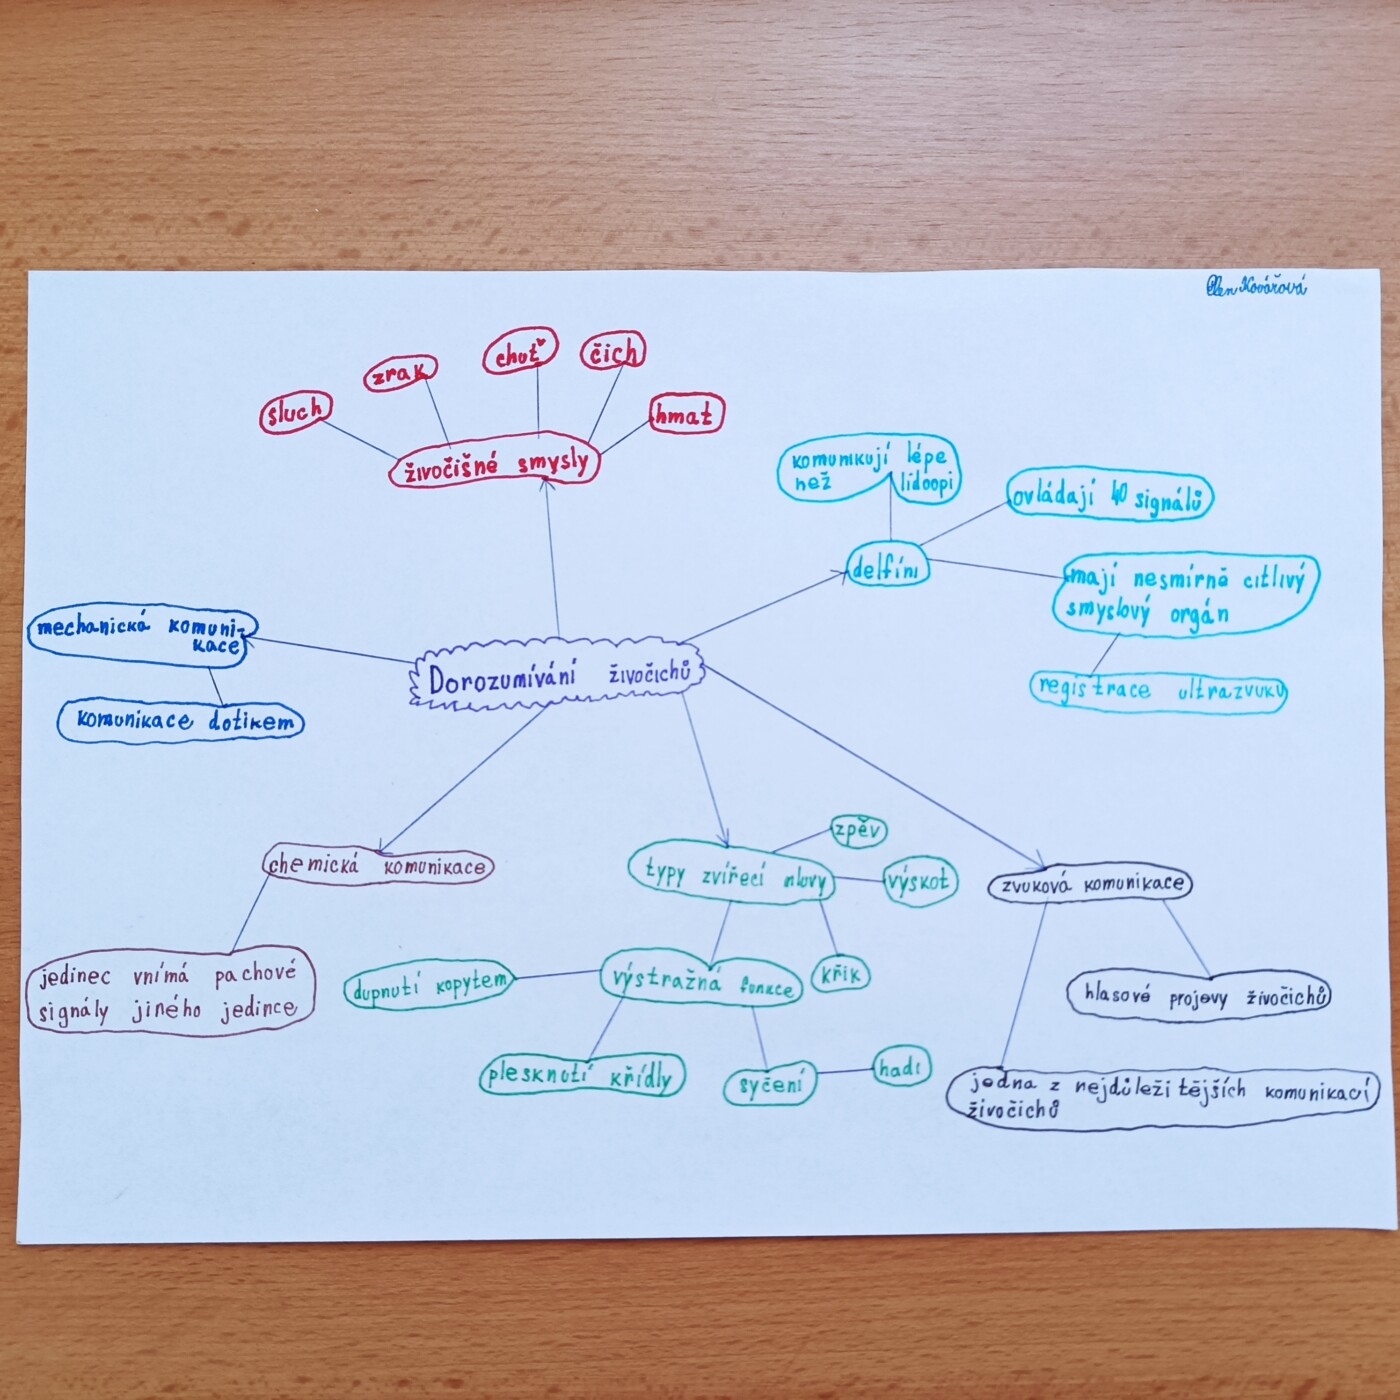 Elen Kovářová
sluch
zrak
chuť
čich
hmat
živočišné smysly
komunikují lépe
než lidoopi
ovládají 40 signálů
delfíni
mají nesmírně citlivý
smyslový orgán
registrace ultrazvuku
mechanická komuni-
kace
komunikace dotikem
Dorozumívání živočichů
chemická komunikace
jedinec vnímá pachové
signály jiného jedince
typy zvířecí mluvy
zpěv
výskot
křik
výstražná funkce
dupnutí kopytem
plesknutí křídly
syčení
hadi
zvuková komunikace
hlasové projevy živočichů
jedna z nejdůležitějších komunikací
živočichů